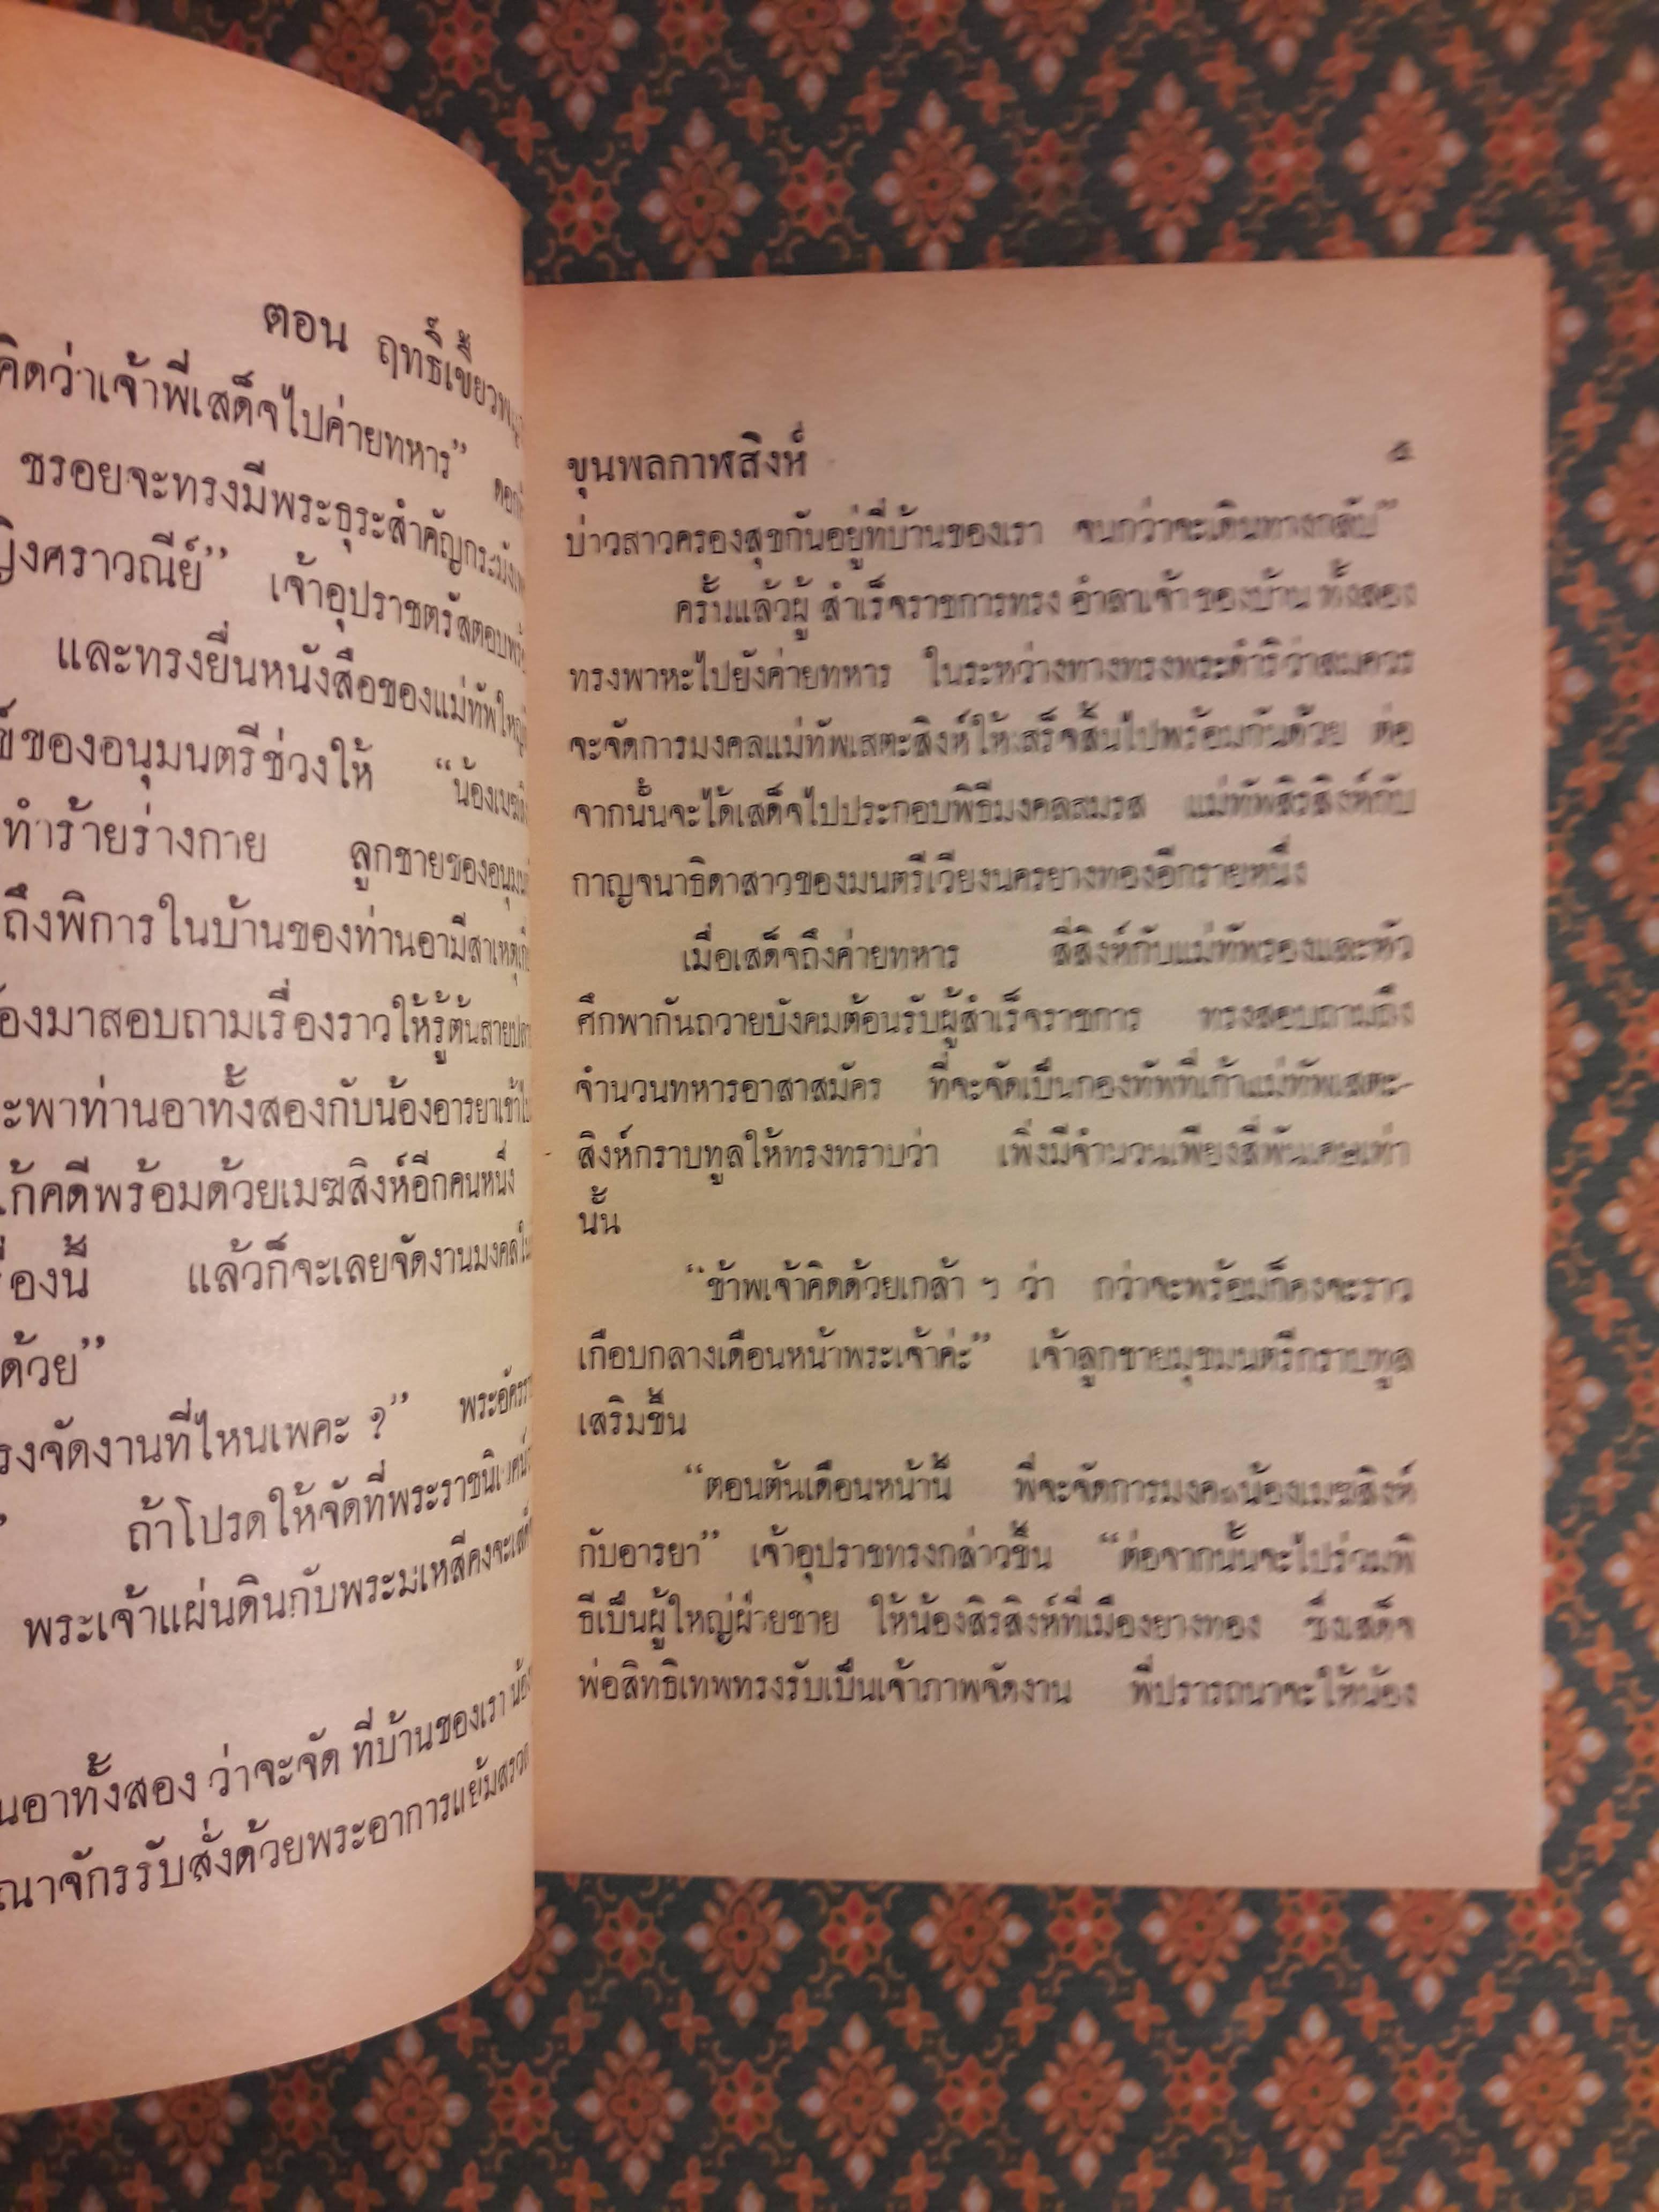 ตอน ฤทธิ์เขี้ยว
คิดว่าเจ้าพี่เสด็จไปค่ายทหาร”
ชรอยจะทรงมีพระธุระสำคัญกระมัง
ญิงศราวณีย์” เจ้าอุปราชตรัสตอบ
และทรงยื่นหนังสือของแม่ทัพใหญ่
ของอนุมนตรีช่วงให้ “น้องเมฆ
ทำร้ายร่างกาย ลูกชายของอนุมน
ถึงพิการในบ้านของท่านอามีสาเหตุ
องมาสอบถามเรื่องราวให้รู้ต้นสายปลา
ะพาท่านอาทั้งสองกับน้องอารยาเข้าไป
แก้คดีพร้อมด้วยเมฆสิงห์อีกคนหนึ่ง
องนี้ แล้วก็จะเลยจัดงานมงคล
ด้วย”
รงจัดงานที่ไหนเพคะ ?” พระอัคร
ถ้าโปรดให้จัดที่พระราชนิเวศน์
พระเจ้าแผ่นดินกับพระมเหสีคงจะเสด็
นอาทั้งสอง ว่าจะจัด ที่บ้านของเรา น้อง
ณาจักรรับสั่งด้วยพระอาการแย้มสรวล
ขุนพลกาฬสิงห์ ๕
บ่าวสาวครองสุขกันอยู่ที่บ้านของเรา จนกว่าจะเดินทางกลับ”
ครั้นแล้วผู้ สำเร็จราชการทรง อำลาเจ้า ของบ้าน ทั้งสอง
ทรงพาหะไปยังค่ายทหาร ในระหว่างทางทรงพระดำริว่าสมควร
จะจัดการมงคลแม่ทัพเสตะสิงห์ให้เสร็จสิ้นไปพร้อมกันด้วย ต่อ
จากนั้นจะได้เสด็จไปประกอบพิธีมงคลสมรส แม่ทัพสิรสิงห์กับ
กาญจนาธิดาสาวของมนตรีเวียงนครยางทองอีกรายหนึ่ง
เมื่อเสด็จถึงค่ายทหาร สี่สิงห์กับแม่ทัพรองและหัว
ศึกพากันถวายบังคมต้อนรับผู้สำเร็จราชการ ทรงสอบถามถึง
จำนวนทหารอาสาสมัคร ที่จะจัดเป็นกองทัพที่เก้าแม่ทัพเสตะ-
สิงห์กราบทูลให้ทรงทราบว่า เพิ่งมีจำนวนเพียงสี่พันเศษเท่า
นั้น
“ข้าพเจ้าคิดด้วยเกล้า ฯ ว่า กว่าจะพร้อมก็คงจะราว
เกือบกลางเดือนหน้าพระเจ้าค่ะ” เจ้าลูกชายมุขมนตรีกราบทูล
เสริมขึ้น
“ตอนต้นเดือนหน้านี้ พี่จะจัดการมงคลน้องเมฆสิงห์
กับอารยา” เจ้าอุปราชทรงกล่าวขึ้น “ต่อจากนั้นจะไปร่วมพิ
ธีเป็นผู้ใหญ่ฝ่ายชาย ให้น้องสิรสิงห์ที่เมืองยางทอง ซึ่งเสด็จ
พ่อสิทธิเทพทรงรับเป็นเจ้าภาพจัดงาน พี่ปรารถนาจะให้น้อง